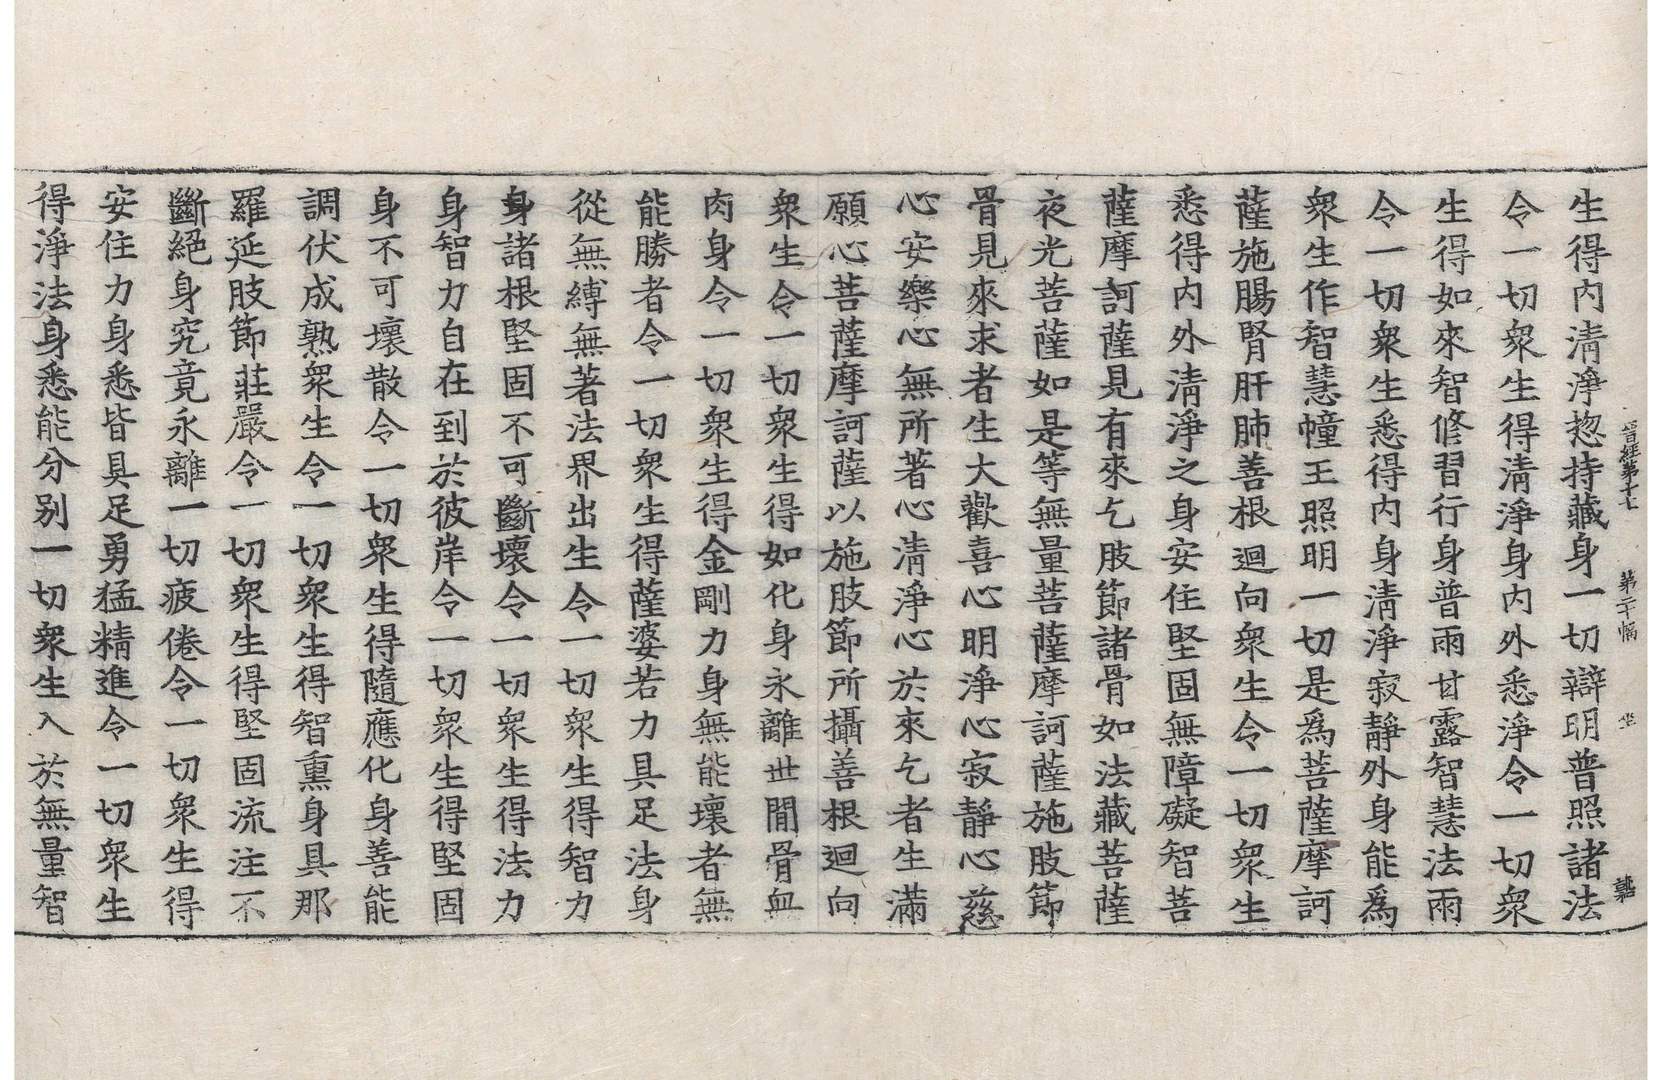 晉經第十七 第二十幅 坐
生得内清淨惣持藏身一切辯明普照諸法
令一切衆生得清淨身内外悉淨令一切衆
生得如來智修習行身普雨甘露智慧法雨
令一切衆生悉得内身清淨寂靜外身能爲
衆生作智慧幢王照明一切是爲菩薩摩訶
薩施腸腎肝肺善根迴向衆生令一切衆生
悉得内外清淨之身安住堅固無障礙智菩
薩摩訶薩見有來乞肢節諸骨如法藏菩薩
夜光菩薩如是等無量菩薩摩訶薩施肢節
骨見來求者生大歡喜心明淨心寂靜心慈
心安樂心無所著心清淨心於來乞者生滿
願心菩薩摩訶薩以施肢節所攝善根迴向
衆生令一切衆生得如化身永離世間骨血
肉身令一切衆生得金剛力身無能壞者無
能勝者令一切衆生得薩婆若力具足法身
從無縛無著法界出生令一切衆生得智力
身諸根堅固不可斷壞令一切衆生得法力
身智力自在到於彼岸令一切衆生得堅固
身不可壞散令一切衆生得隨應化身善能
調伏成熟衆生令一切衆生得智熏身具那
羅延肢節莊嚴令一切衆生得堅固流注不
斷絕身究竟永離一切疲倦令一切衆生得
安住力身悉皆具足勇猛精進令一切衆生
得淨法身悉能分别一切衆生入於無量智